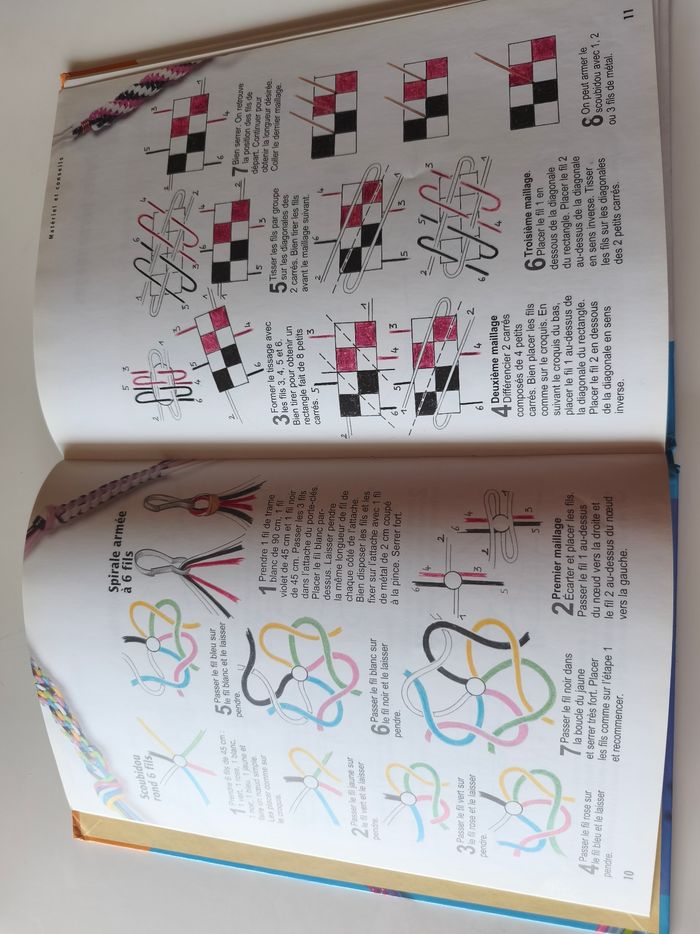 Scoubidou
rond 6 fils
1 Prendre 6 fils de 45 cm :
1 vert, 1 rose, 1 blanc,
1 noir, 1 bleu, 1 jaune et
faire un nœud simple.
Les placer comme sur
le croquis.
2 Passer le fil jaune sur
le fil vert et le laisser
pendre.
3 Passer le fil vert sur
le fil rose et le laisser
pendre.
4 Passer le fil rose sur
le fil bleu et le laisser
pendre.
10
5 Passer le fil bleu sur
le fil blanc et le laisser
pendre.
6 Passer le fil blanc sur
le fil noir et le laisser
pendre.
7 Passer le fil noir dans
la boucle du jaune
et serrer très fort. Placer
les fils comme sur l'étape 1
et recommencer.
Spirale armée
à 6 fils
1 Prendre 1 fil de trame
blanc de 90 cm, 1 fil
violet de 45 cm et 1 fil noir
de 45 cm. Passer les 3 fils
dans l'attache du porte-clés.
Placer le fil blanc par-
dessus. Laisser pendre
la même longueur de fil de
chaque côté de l'attache.
Bien disposer les fils et les
fixer sur l'attache avec 1 fil
de métal de 2 cm coupé
à la pince. Serrer fort.
2 Premier maillage
Écarter et placer les fils.
Passer le fil 1 au-dessus
du nœud vers la droite et
le fil 2 au-dessus du nœud
vers la gauche.
Matériel et conseils
3 Former le tissage avec
les fils 3, 4, 5 et 6.
Bien tirer pour obtenir un
rectangle fait de 8 petits
carrés.
4 Deuxième maillage
Différencier 2 carrés
composés de 4 petits
carrés. Bien placer les fils
comme sur le croquis. En
suivant le croquis du bas,
placer le fil 1 au-dessus de
la diagonale du rectangle.
Placer le fil 2 en dessous
de la diagonale en sens
inverse.
5 Tisser les fils par groupe
sur les diagonales des
2 carrés. Bien tirer les fils
avant le maillage suivant.
6 Troisième maillage.
Placer le fil 1 en
dessous de la diagonale
du rectangle. Placer le fil 2
au-dessus de la diagonale
en sens inverse. Tisser
les fils sur les diagonales
des 2 petits carrés.
7 Bien serrer. On retrouve
la position des fils de
départ. Continuer pour
obtenir la longueur désirée.
Coller le dernier maillage.
8 On peut armer le
scoubidou avec 1, 2
ou 3 fils de métal.
11